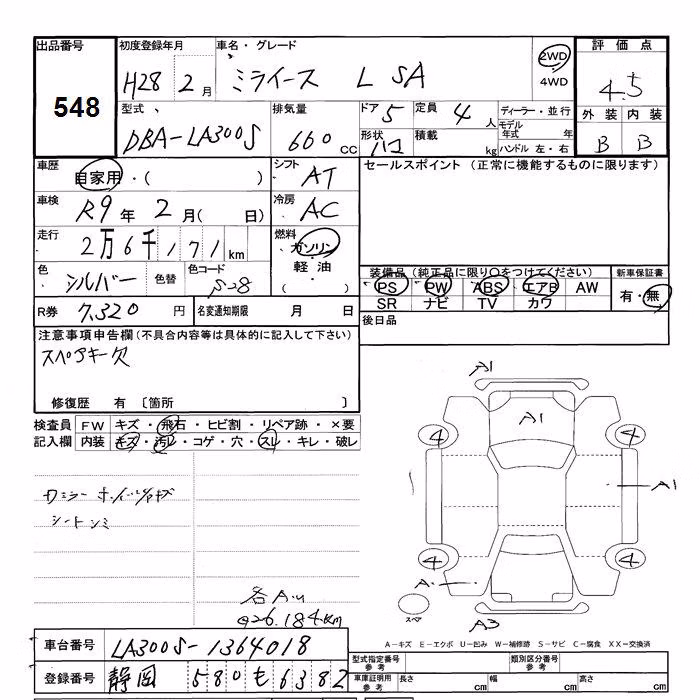 出品番号 初度登録年月 車名・グレード 評価点
548
H28 2月 ミライース L SA 2WD 4WD 4.5
型式 排気量 ドア 5 定員 4人 ディーラー・並行 外装 内装
モデル年式 年
DBA-LA300S 660cc 形状 ハコ 積載 kg ハンドル 左・右 B B
車歴 自家用・( ) シフト AT セールスポイント (正常に機能するものに限ります)
車検 R9年 2月( 日) 冷房 AC
走行 2万6千171km 燃料 ガソリン・軽油・( )
色 シルバー 色替 色コード S-28 装備品 (純正品に限り○をつけてください) 新車保証書
PS PW ABS エアB AW 有・無
SR ナビ TV カワ
R券 7,320円 名変通知期限 月 日 後日品
注意事項申告欄(不具合内容等は具体的に記入して下さい)
スペアキー欠
修復歴 有 〔箇所 〕
検査員 FW キズ・飛石・ヒビ割・リペア跡・×要
記入欄 内装 キズ・汚レ・コゲ・穴・スレ・キレ・破レ
シート
各A.u
026.184km
A1
A1
4 4
A1
4 4
A
スペア
A3
A-キズ E-エクボ U-凹み W-補修跡 S-サビ C-腐食 XX-交換済
車台番号 LA300S-1364018
型式指定番号 参考 類別区分番号 参考
登録番号 静岡 580 も 6382
車庫証明用 参考 長さ cm 幅 cm 高さ cm